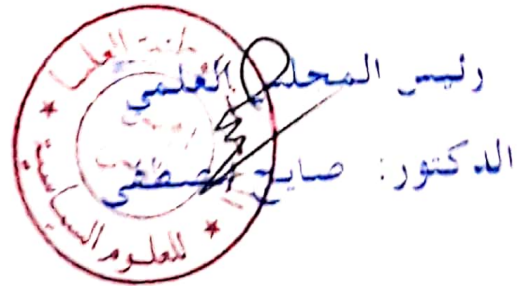 رئيس المجلس العلمي
الدكتور: صايج مصطفى
العليا
للعلوم السياسية